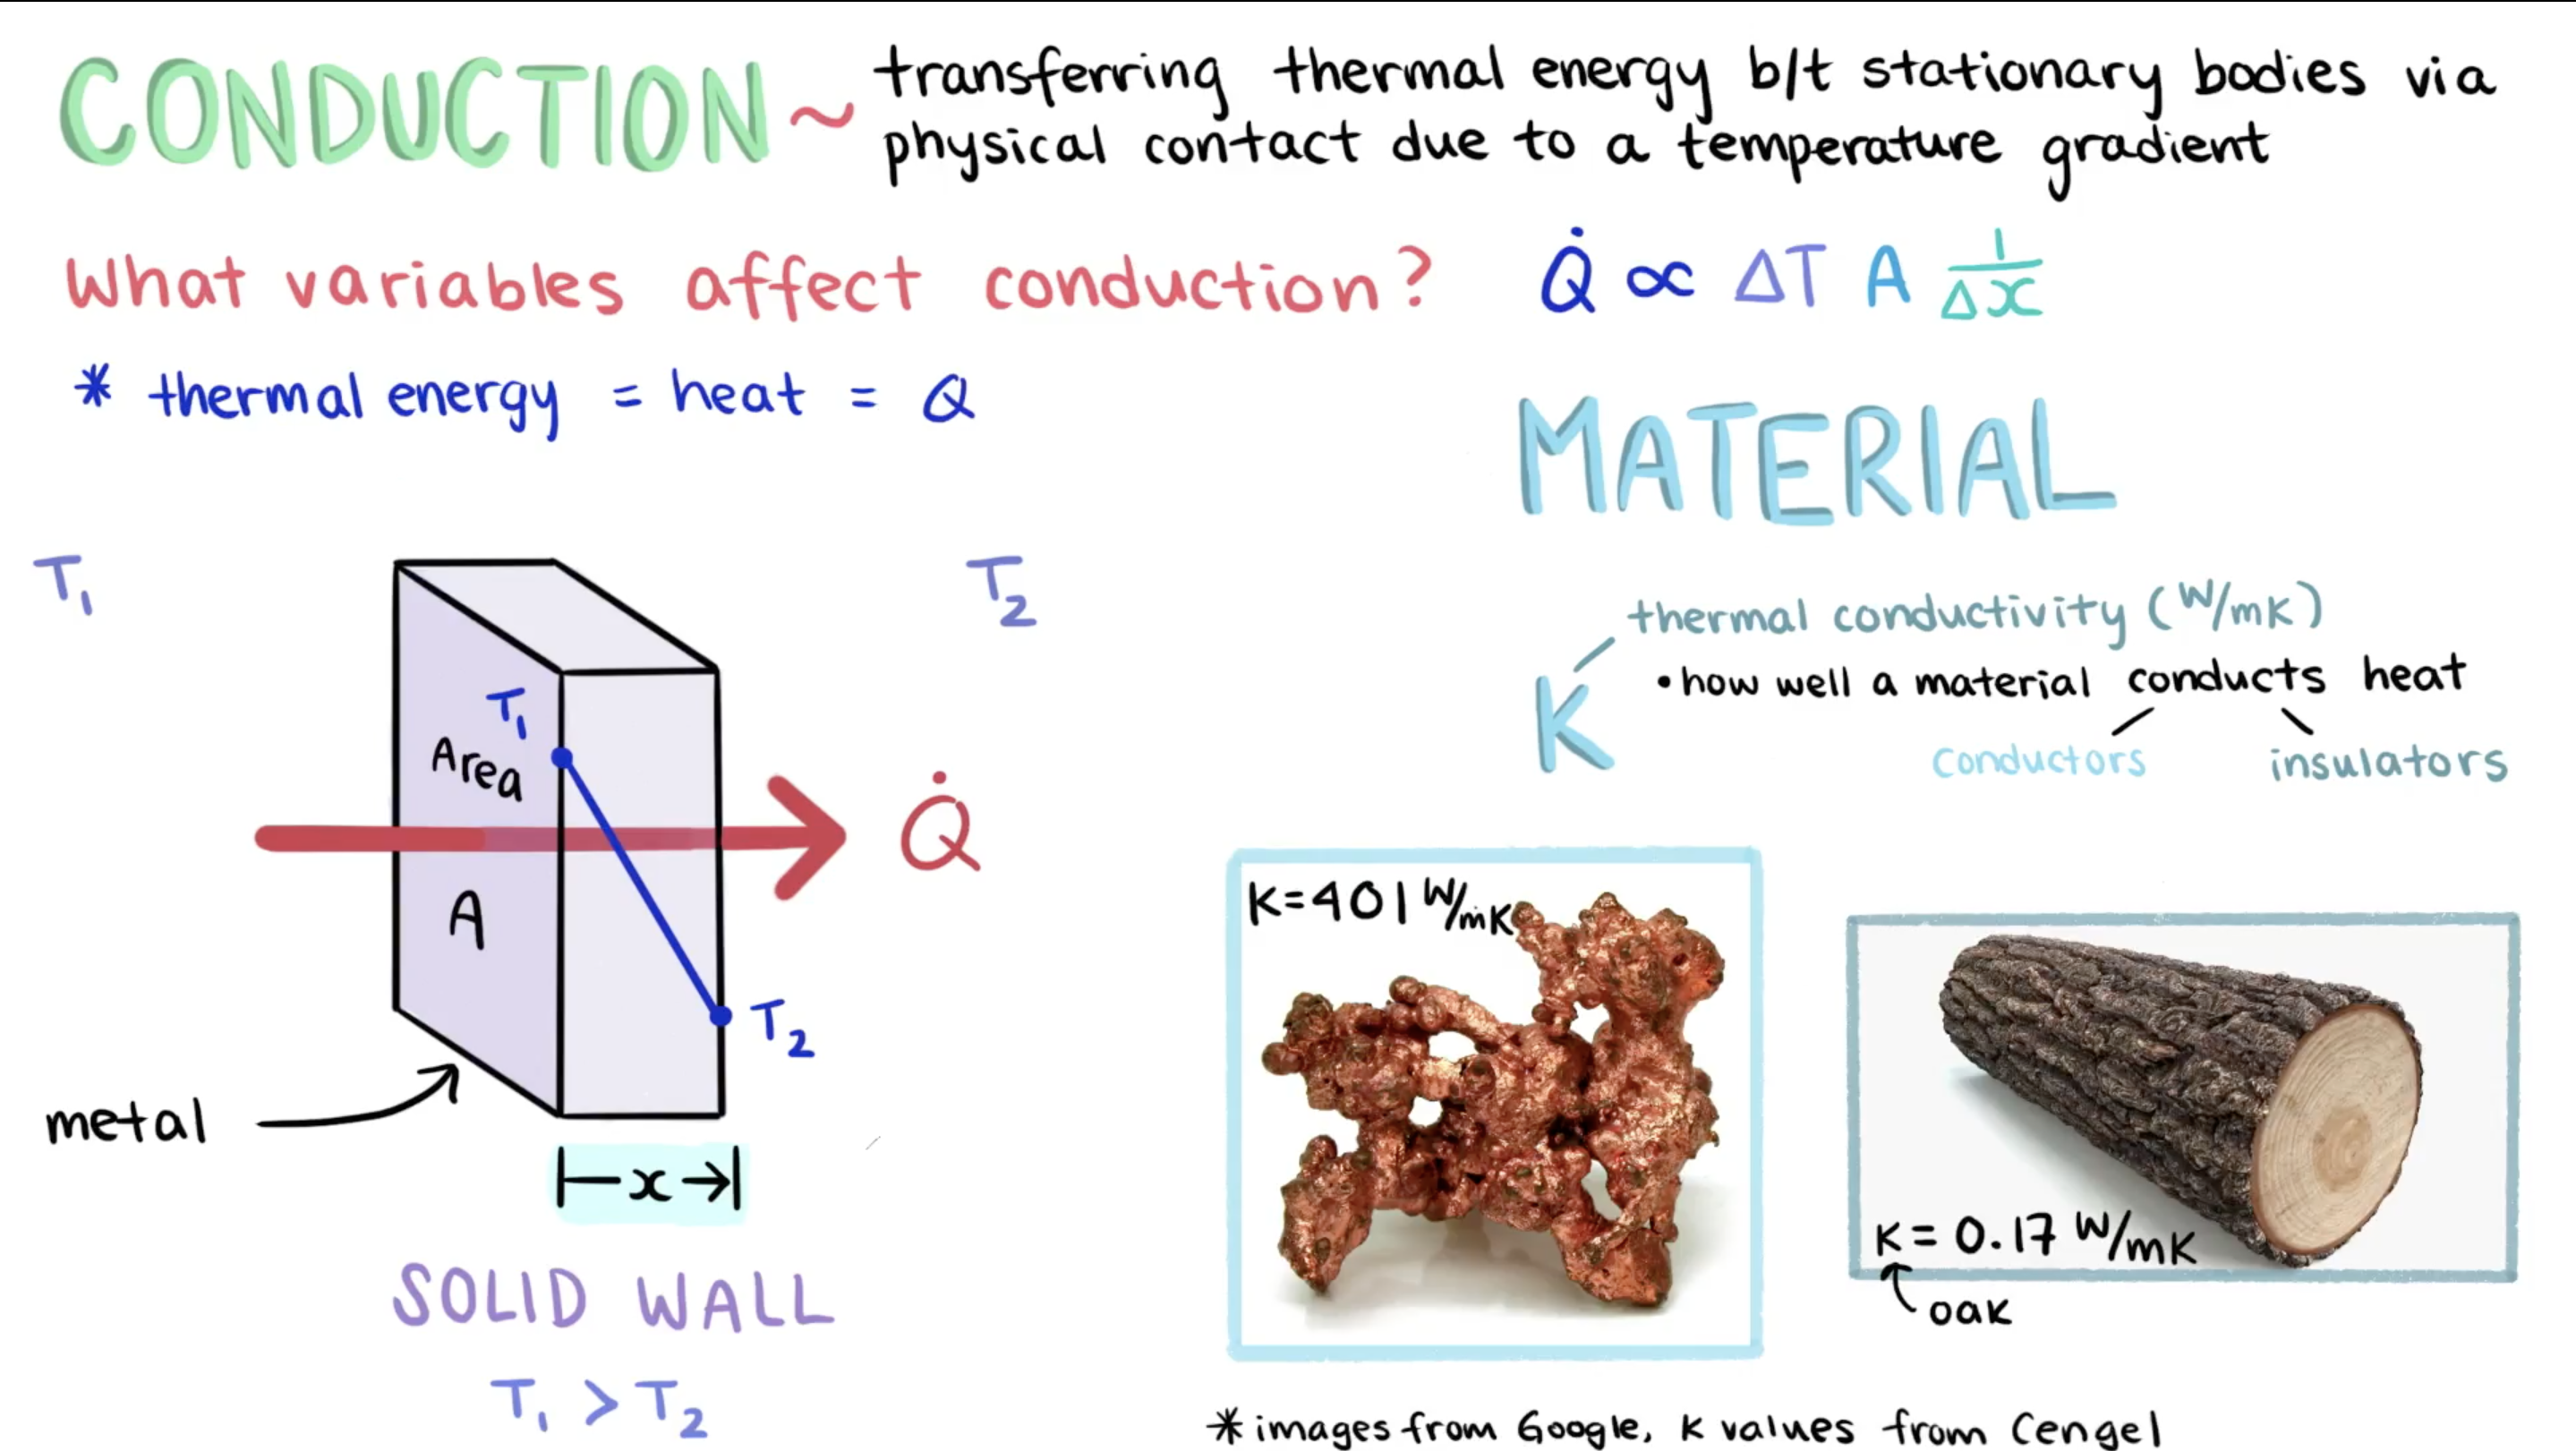 CONDUCTION ~ transferring thermal energy b/t stationary bodies via
physical contact due to a temperature gradient
What variables affect conduction?
Q̇ ∝ ΔT A 1/Δx
* thermal energy = heat = Q
MATERIAL
T₁
T₂
thermal conductivity (W/mK)
K
• how well a material conducts heat
conductors
insulators
T₁
Area
A
Q̇
T₂
metal
x
SOLID WALL
T₁ > T₂
K=401 W/mK
K = 0.17 W/mK
oak
* images from Google, K values from Cengel